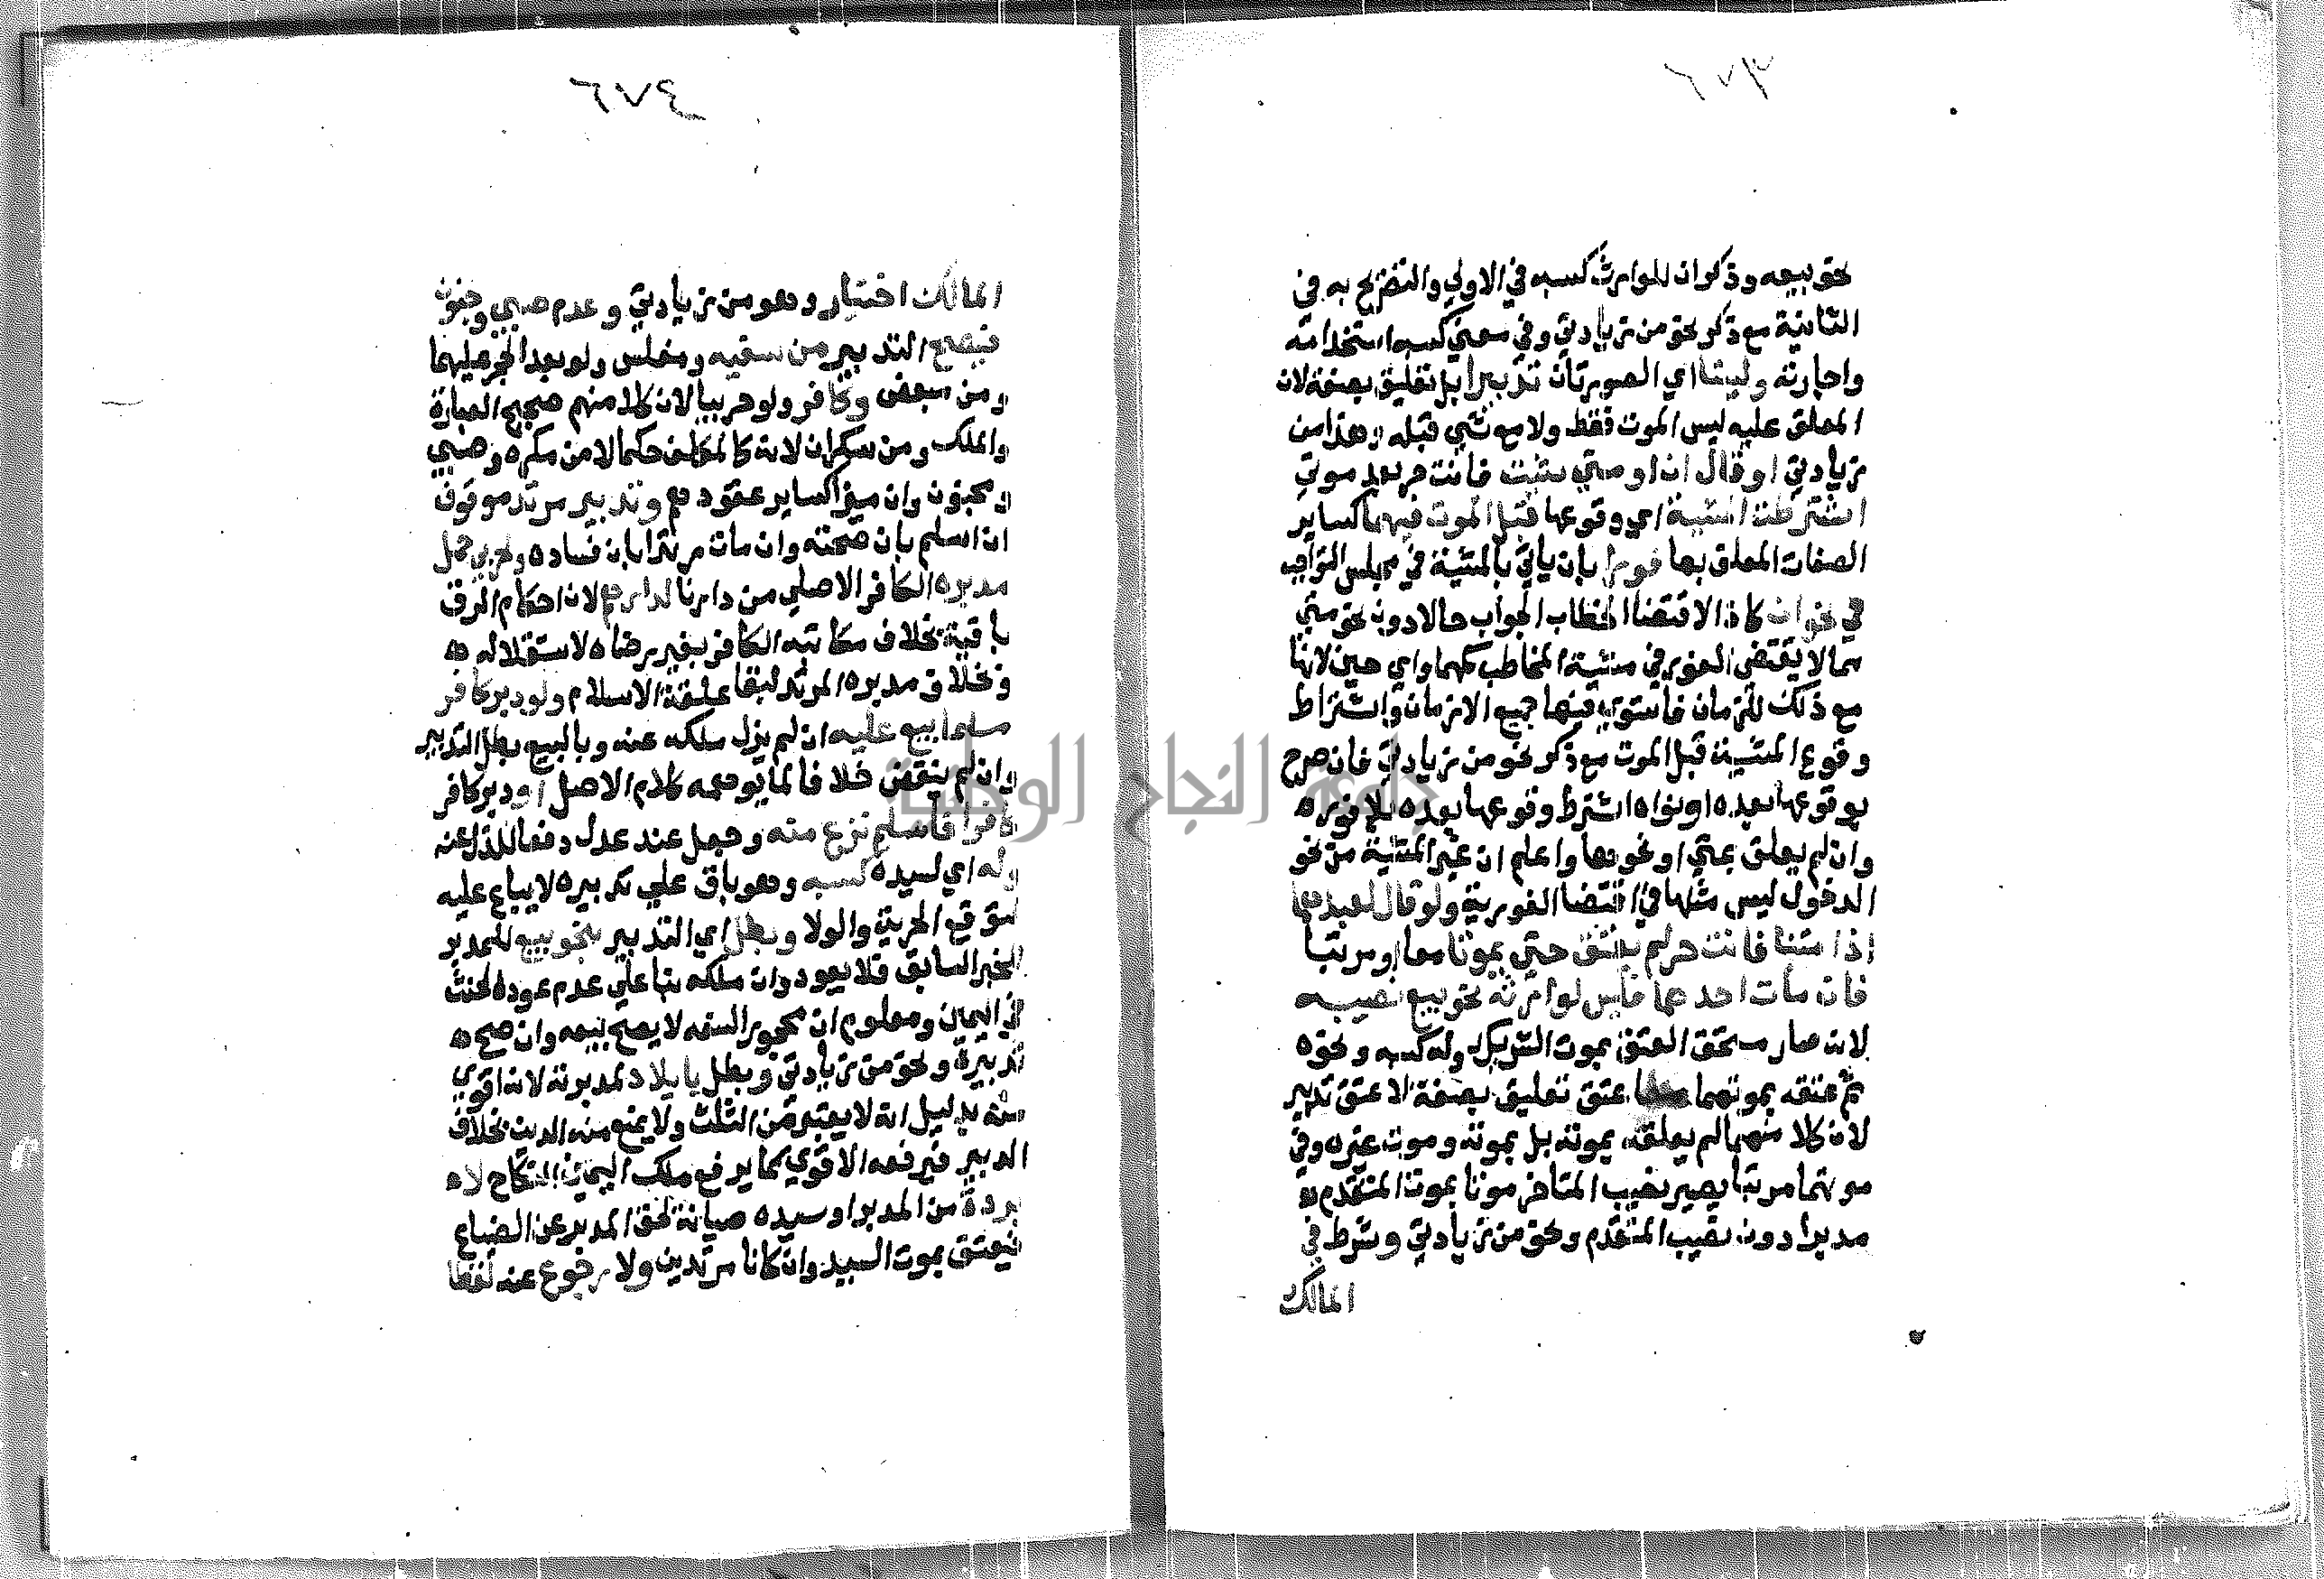 ٦٧٣
نحو بيعه وذكر ان للوارث كسبه في الاولي والتصريح به في
الثانية مع ذكر نحو من زيادتي وفي معني كسبه استخدامه
واجارته وليستا اي الصورتان تدبيرا بل تعليق بصفة لان
المعلق عليه ليس الموت فقط ولا مع شي قبله وهذا من
زيادتي او قال ان او متي شئت فانت حر بعد موتي
اشترطت المشية اي وقوعها قبل الموت فيهما كساير
الصفات المعلق بها فورا بان ياتي بالمشية في مجلس التواجب
في نحو ان كاذا لاقتضا الخطاب الجواب حالا دون نحو متي
مما لا يقتضي الفور في مشية المخاطب كمهما واي حين لانها
مع ذلك للزمان فاستوي فيها جميع الازمان واشتراط
وقوع المشية قبل الموت مع ذكر نحو من زيادتي فان صرح
بوقوعها بعده او نواه اشترط وقوعها بعده بلا فور ه
وان لم يعلق بمتي او نحوها واعلم ان غير المشية من نحو
الدخول ليس مثلها في اقتضا الفورية ولو قالا لعبدهما
اذا متنا فانت حر لم يعتق حتي يموتا معا او مرتبا
فان مات احدهما فليس لوارثه نحو بيع نصيبه
لانه صار مستحق العتق بموت الشريك وله كسبه ونحوه
ثم عتقه بموتهما معا عتق تعليق بصفة لا عتق تدبير
لان كلا منهما لم يعلقه بموته بل بموته وموت غيره وفي
موتهما مرتبا يصير نصيب المتاخر موتا بموت المتقدم
مدبرا دون نصيب المتقدم ونحو من زيادتي وشرط في
المالك
٦٧٤
المالك اختيار وهو من زيادتي وعدم صبي وجنون
فيصح التدبير من سفيه ومفلس ولو بعد الحجر عليهما
ومن مبعض وكافر ولو حربيا لان كلا منهم صحيح العبارة
والملك ومن سكران لانه كالمكلف حكما لا من مكره وصبي
ومجنون وان ميزا كساير عقودهم وتدبير مرتد موقوف
ان اسلم بان صحته وان مات مرتدا بان فساده ولحربي حمل
مدبره الكافر الاصلي من دارنا لدارهم لان احكام الرق
باقية بخلاف مكاتبه الكافر بغير رضاه لاستقلاله ه
وبخلاف مدبره المرتد لبقا علقة الاسلام ولو دبر كافر
مسلما بيع عليه ان لم يزل ملكه عنه وبالبيع بطل التدبير
وان لم ينقض خلافا لما يوهمه كلام الاصل او دبر كافر
كافرا فاسلم نزع منه وجعل عند عدل دفعا للذل عنه
وله اي لسيده كسبه وهو باق علي تدبيره لا يباع عليه
لتوقع الحرية والولا وبطل اي التدبير بنحو بيع للمدبر
للخبر السابق فلا يعود وان ملكه بنا علي عدم عود الحنث
في اليمين ومعلوم ان محجور السفه لا يصح بيعه وان صح ه
تدبيره ونحو من زيادتي وبطل بايلاد لمدبرته لانه اقوي
منه بدليل انه لا يعتبر من الثلث ولا يمنع منه الدين بخلاف
التدبير فيرفعه الاقوي كما يرفع ملك اليمين النكاح لا ه
بردة من المدبر او سيده صيانة لحق المدبر عن الضياع
فيعتق بموت السيد وان كانا مرتدين ولا رجوع عنه لفظا